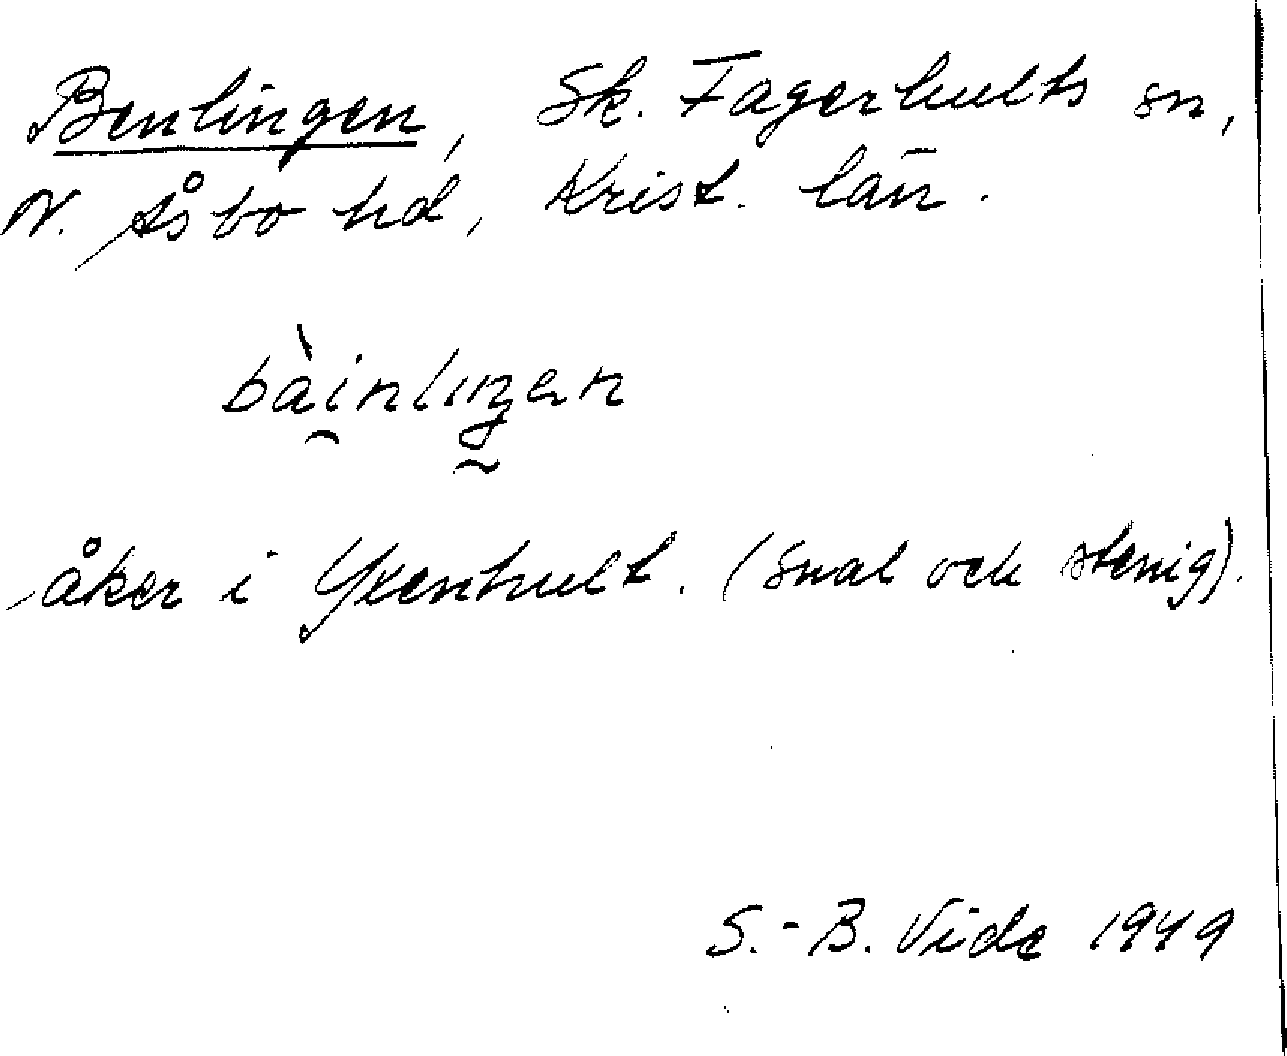 Benlingen, Sk. Fagerhults sn,
N. Åsbo hd, Krist. län.
bàinliŋən
åker i Yxenhult. (Smal och stenig).
S.-B. Vide 1949